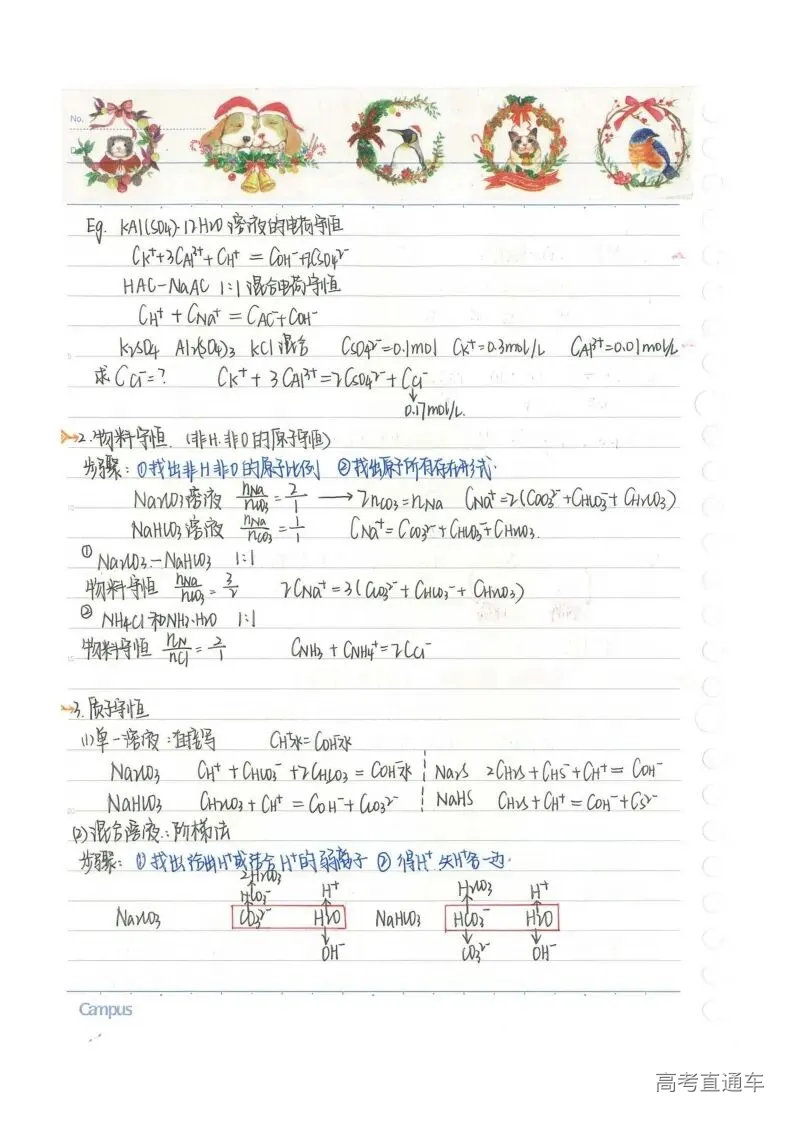 No.
D
Eg. KAl(SO4)·12H2O溶液的电荷守恒
CK⁺+3CAl³⁺+CH⁺ = COH⁻+2CSO4²⁻
HAC-NaAC 1:1混合电荷守恒
CH⁺ + CNa⁺ = CAC⁻+COH⁻
K2SO4 Al2(SO4)3 KCl混合 CSO4²⁻=0.1mol CK⁺=0.3mol/L CAl³⁺=0.01mol/L
求CCl⁻=? CK⁺ + 3CAl³⁺=2CSO4²⁻+CCl⁻
↓
0.17mol/L.
2.物料守恒.(非H.非O的原子守恒)
步骤:①找出非H非O的原子比例 ②找出原子所有存在形式.
Na2CO3溶液 nNa/nCO3=2/1 → 2nCO3=nNa CNa⁺=2(CCO3²⁻+CHCO3⁻+CH2CO3)
NaHCO3溶液 nNa/nCO3=1/1 CNa⁺=CCO3²⁻+CHCO3⁻+CH2CO3.
① Na2CO3-NaHCO3 1:1
物料守恒 nNa/nCO3=3/2 2CNa⁺=3(CCO3²⁻+CHCO3⁻+CH2CO3)
② NH4Cl和NH3·H2O 1:1
物料守恒 nN/nCl=2/1 CNH3+CNH4⁺=2CCl⁻
3.质子守恒
(1)单一溶液:直接写 CH⁺水=COH⁻水
Na2CO3 CH⁺+CHCO3⁻+2CH2CO3=COH⁻水 Na2S 2CH2S+CHS⁻+CH⁺=COH⁻
NaHCO3 CH2CO3+CH⁺=COH⁻+CCO3²⁻ NaHS CH2S+CH⁺=COH⁻+CS²⁻
(2)混合溶液:阶梯法
步骤:①找出给出H⁺或结合H⁺的弱离子 ②得H⁺.失H⁺各一边.
2H2CO3
↑
HCO3⁻ H⁺ H2CO3 H⁺
↑ ↑ ↑ ↑
Na2CO3 CO3²⁻ H2O NaHCO3 HCO3⁻ H2O
↓ ↓ ↓
OH⁻ CO3²⁻ OH⁻
Campus
高考直通车